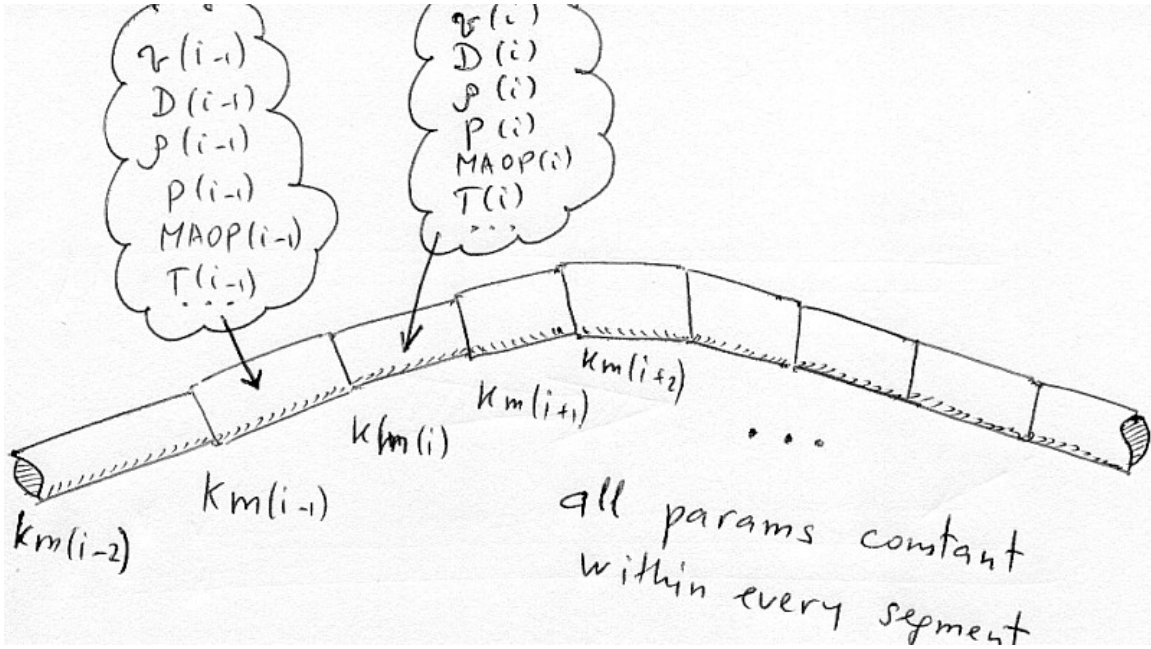 v(i-1)
D(i-1)
ρ(i-1)
P(i-1)
MAOP(i-1)
T(i-1)
...
v(i)
D(i)
ρ(i)
P(i)
MAOP(i)
T(i)
...
km(i-2)
km(i-1)
km(i)
km(i+1)
km(i+2)
...
all params constant
within every segment